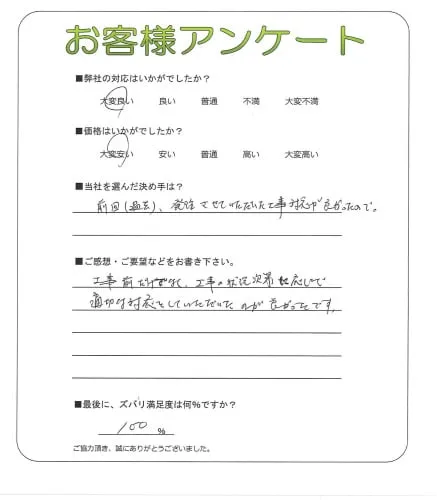 お客様アンケート
■弊社の対応はいかがでしたか？
大変良い 良い 普通 不満 大変不満
■価格はいかがでしたか？
大変安い 安い 普通 高い 大変高い
■当社を選んだ決め手は？
前回(過去)、発注させていただいた工事対応が良かったので。
■ご感想・ご要望などをお書き下さい。
工事前だけでなく、工事の状況次第に応じて
適切な対応をしていただいたのが良かったです。
■最後に、ズバリ満足度は何％ですか？
100 ％
ご協力頂き、誠にありがとうございました。